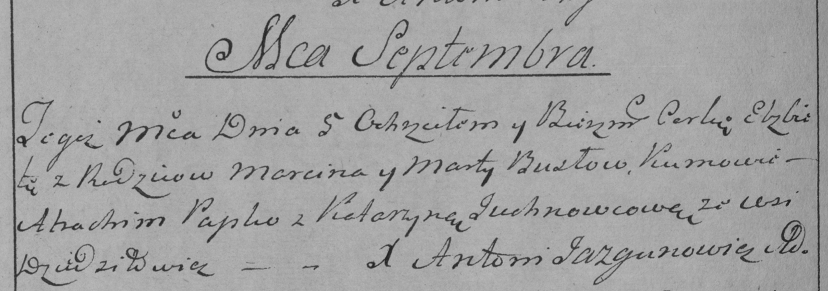 Mca Septembra.
Tegoż Mca Dnia 5 Ochrzciłem y Bierzm Corkę Elzbie
tę z Rodzicow Marcina y Marty Busłow, Kumowie —
Atrachim Papko z Katarzyną Juchnowcową ze wsi
Dziedziłowicz — — X Antoni Jazgunowicz AD.